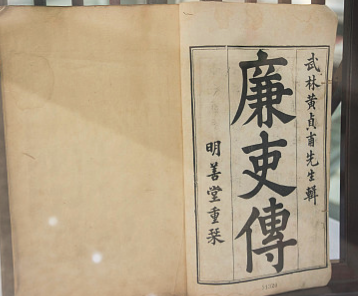 武林黃貞甫先生輯
廉吏傳
明善堂重栞